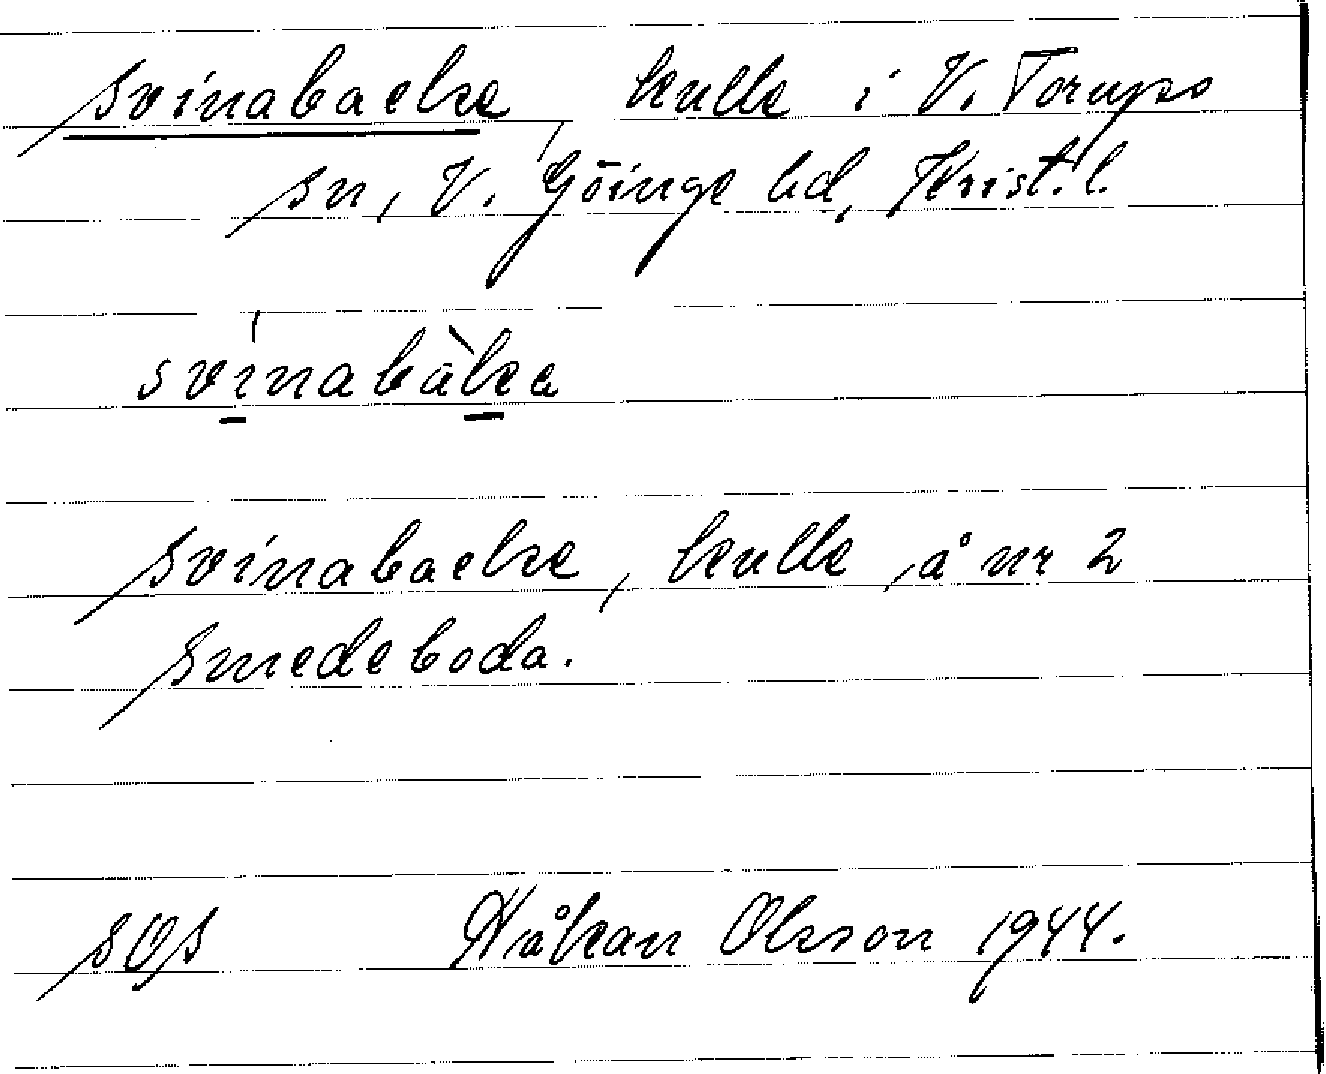 Svinabacke, kulle i V. Torups
sn, V. Göinge hd, Krist. l.
svinabàka
Svinabacke, kulle, å nr 2
Smedeboda.
SOS Håkan Olsson 1944.